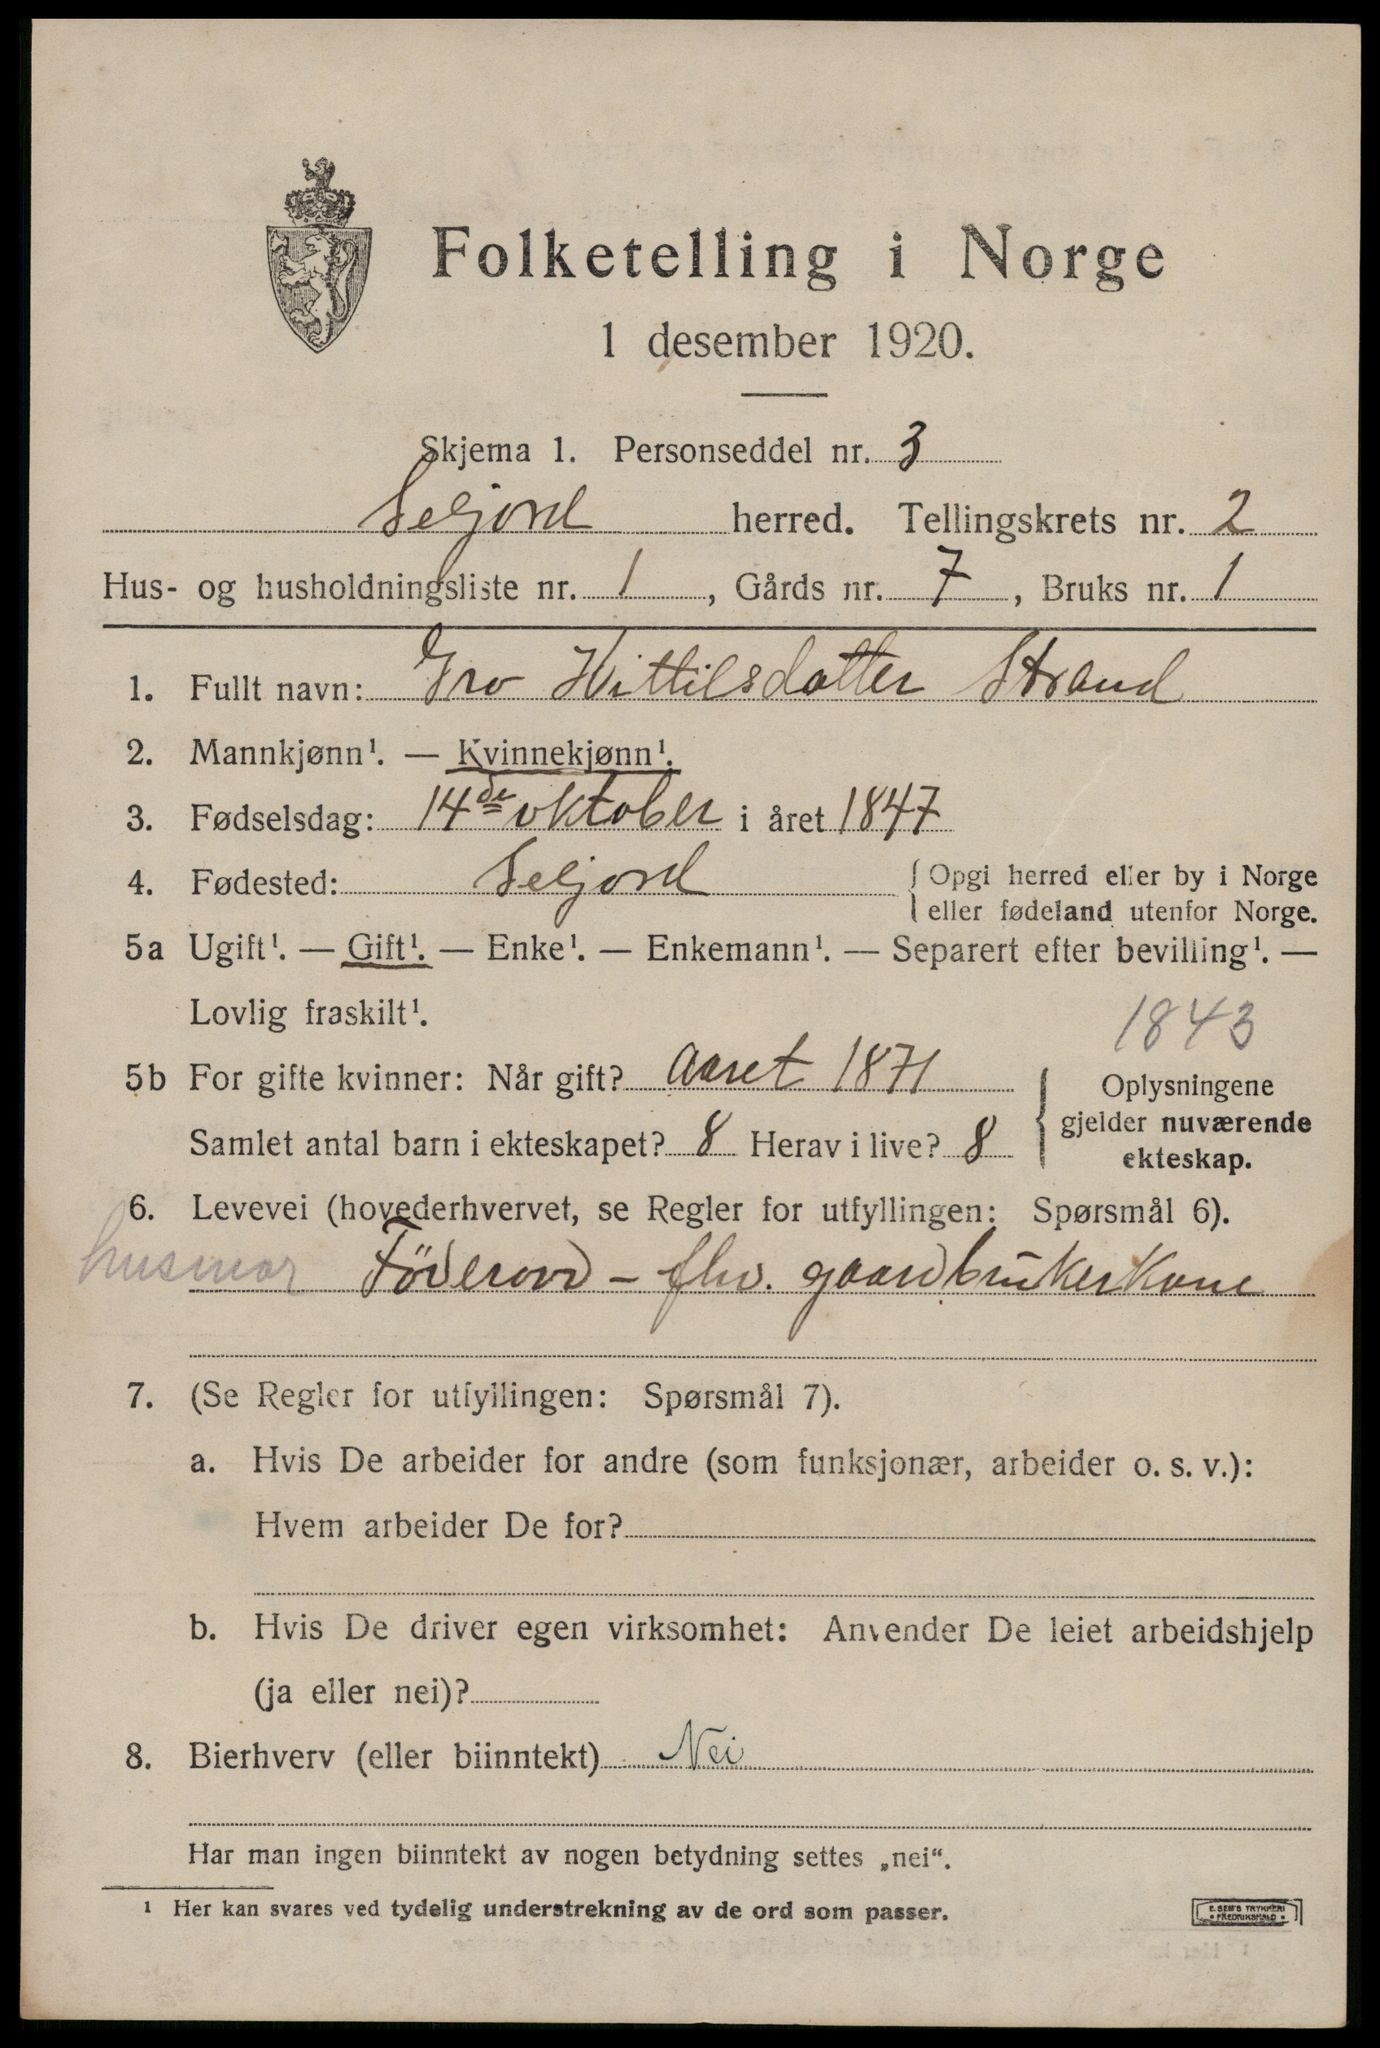 Folketelling i Norge
1 desember 1920.
Skjema 1. Personseddel nr. 3
Seljord herred. Tellingskrets nr. 2
Hus- og husholdningsliste nr. 1, Gårds nr. 7, Bruks nr. 1
1. Fullt navn: Gro Kittilsdatter Strand
2. Mannkjønn¹. — Kvinnekjønn¹.
3. Fødselsdag: 14de oktober i året 1847
4. Fødested: Seljord { Opgi herred eller by i Norge
eller fødeland utenfor Norge.
5a Ugift¹. — Gift¹. — Enke¹. — Enkemann¹. — Separert efter bevilling¹. —
Lovlig fraskilt¹.
1843
5b For gifte kvinner: Når gift? Aaret 1871
Samlet antal barn i ekteskapet? 8 Herav i live? 8
{ Oplysningene
gjelder nuværende
ekteskap.
6. Levevei (hovederhvervet, se Regler for utfyllingen: Spørsmål 6).
husmor Föderaad - fhv. gaardbrukerkone
7. (Se Regler for utfyllingen: Spørsmål 7).
a. Hvis De arbeider for andre (som funksjonær, arbeider o. s. v.):
Hvem arbeider De for?
b. Hvis De driver egen virksomhet: Anvender De leiet arbeidshjelp
(ja eller nei)?
8. Bierhverv (eller biinntekt) Nei
Har man ingen biinntekt av nogen betydning settes „nei“.
¹ Her kan svares ved tydelig understrekning av de ord som passer.
E. SEM'S TRYKKERI
FREDRIKSHALD